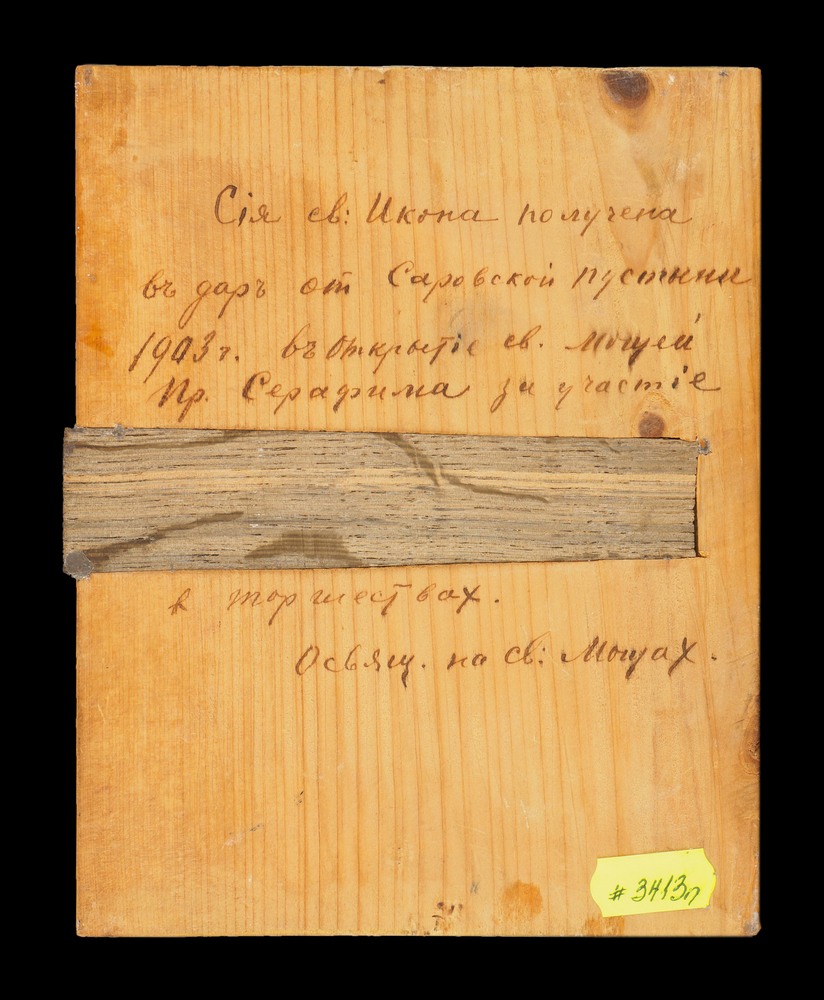 Сія св: Икона получена
въ даръ от Саровской пустыни
1903 г. въ открытіе св. мощей
Пр. Серафима за участіе
в торжествах.
Освящ. на св: Мощах.
# 3413п